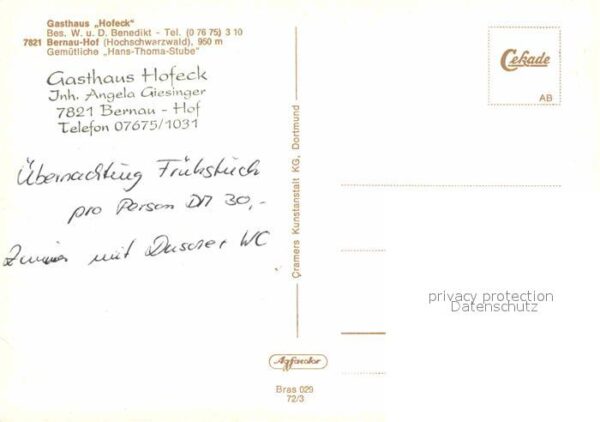 Gasthaus „Hofeck“
Bes. W. u. D. Benedikt - Tel. (0 76 75) 3 10
7821 Bernau-Hof (Hochschwarzwald), 950 m
Gemütliche „Hans-Thoma-Stube“
Gasthaus Hofeck
Inh. Angela Giesinger
7821 Bernau - Hof
Telefon 07675/1031
Übernachtung Frühstück
pro Person DM 30,-
Zimmer mit Dusche WC
Cramers Kunstanstalt KG, Dortmund
Cekade
AB
privacy protection
Datenschutz
Agfacolor
Bras 029
72/3